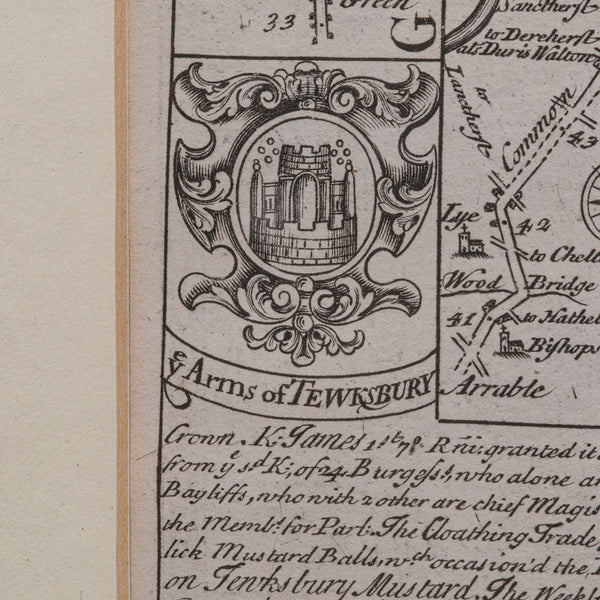 33
Green
G
Sanctherst
to Dereherst
at Duris Walton
to
Landtherst
Common
43
Lye
42
to Chelt
Wood Bridge
41
to Hathel
Bishops
Arrable
ye Arms of TEWKSBURY
Crown. K: James 1st 7o Rñi: granted it
from ye sd K; of 24 Burgess's, who alone an
Bayliffs, who with 2 other are chief Magis
the Membs for Parl: The Cloathing Trade
lick Mustard Balls, wch occasion'd the
on Tewksbury Mustard. The Weekl